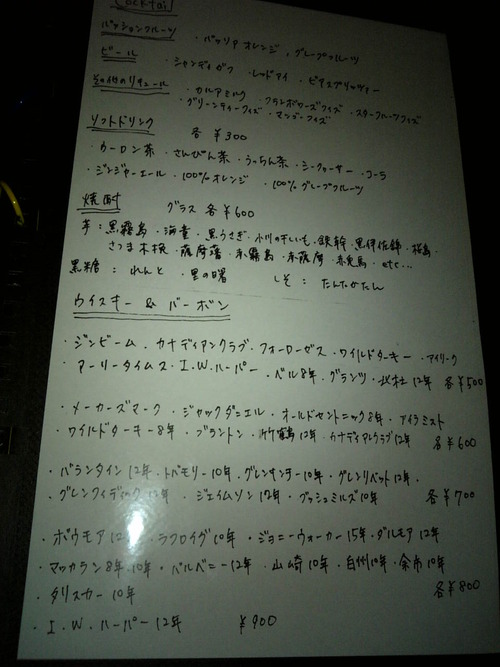 Cocktail
パッションフルーツ ・パッソア オレンジ , グレープフルーツ
ビール ・シャンディガフ ・レッドアイ ・ビアスプリッツァー
その他のリキュール ・カルアミルク ・フランボワーズフィズ ・スターフルーツフィズ
・グリーンティーフィズ ・マンゴーフィズ
ソフトドリンク 各¥300
・ウーロン茶 ・さんぴん茶 ・うっちん茶 ・シークヮーサー ・コーラ
・ジンジャーエール ・100%オレンジ ・100%グレープフルーツ
焼酎 グラス 各¥600
芋:黒霧島 ・海童 ・黒うさぎ ・小川の干しいも ・鉄幹 ・黒伊佐錦 ・桜島
さつま木挽 ・薩摩 ・赤霧島 ・赤薩摩 ・赤兎馬 ・etc...
黒糖 : れんと ・里の曙 しそ : たんたかたん
ウイスキー & バーボン
・ジンビーム ・カナディアンクラブ ・フォーローゼス ・ワイルドターキー ・アイリーク
・アーリータイムス ・I.W.ハーパー ・ベル8年 ・グランツ ・北杜12年 各¥500
・メーカーズマーク ・ジャックダニエル ・オールドセントニック8年 ・アイラミスト
・ワイルドターキー8年 ・ブラントン ・竹鶴12年 ・カナディアンクラブ12年 各¥600
・バランタイン12年 ・トバモリー10年 ・グレンキンチー10年 ・グレンリベット12年 ・
・グレンフィディック12年 ・ジェイムソン12年 ・ブッシュミルズ10年 各¥700
・ボウモア12年 ・ラフロイグ10年 ・ジョニーウォーカー15年 ・ダルモア12年
・マッカラン8年.10年 ・バルベニー12年 ・山崎10年 ・白州10年 ・余市10年
・タリスカー10年 各¥800
・I.W.ハーパー12年 ¥900